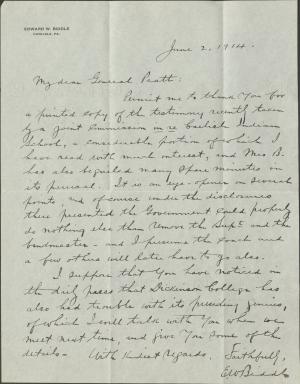 EDWARD W. BIDDLE
CARLISLE, PA.
June 2, 1914.
My dear General Pratt:
Permit me to thank you for
a printed copy of the testimony recently taken
by a Joint Commission in re Carlisle Indian
School, a considerable portion of which I
have read with much interest, and Mrs. B.
has also beguiled many spare minutes in
its perusal. It is an eye-opener on several
points, and of course under the disclosures
there presented the Government could properly
do nothing else than remove the Supt. and the
bandmaster - and I presume the coach and
a few others will later have to go also.
I suppose that you have noticed in
the daily papers that Dickinson College has
also had trouble with its presiding genius,
of which I will talk with you when we
meet next time, and give you some of the
details. With kindest regards,
Faithfully,
E.W. Biddle